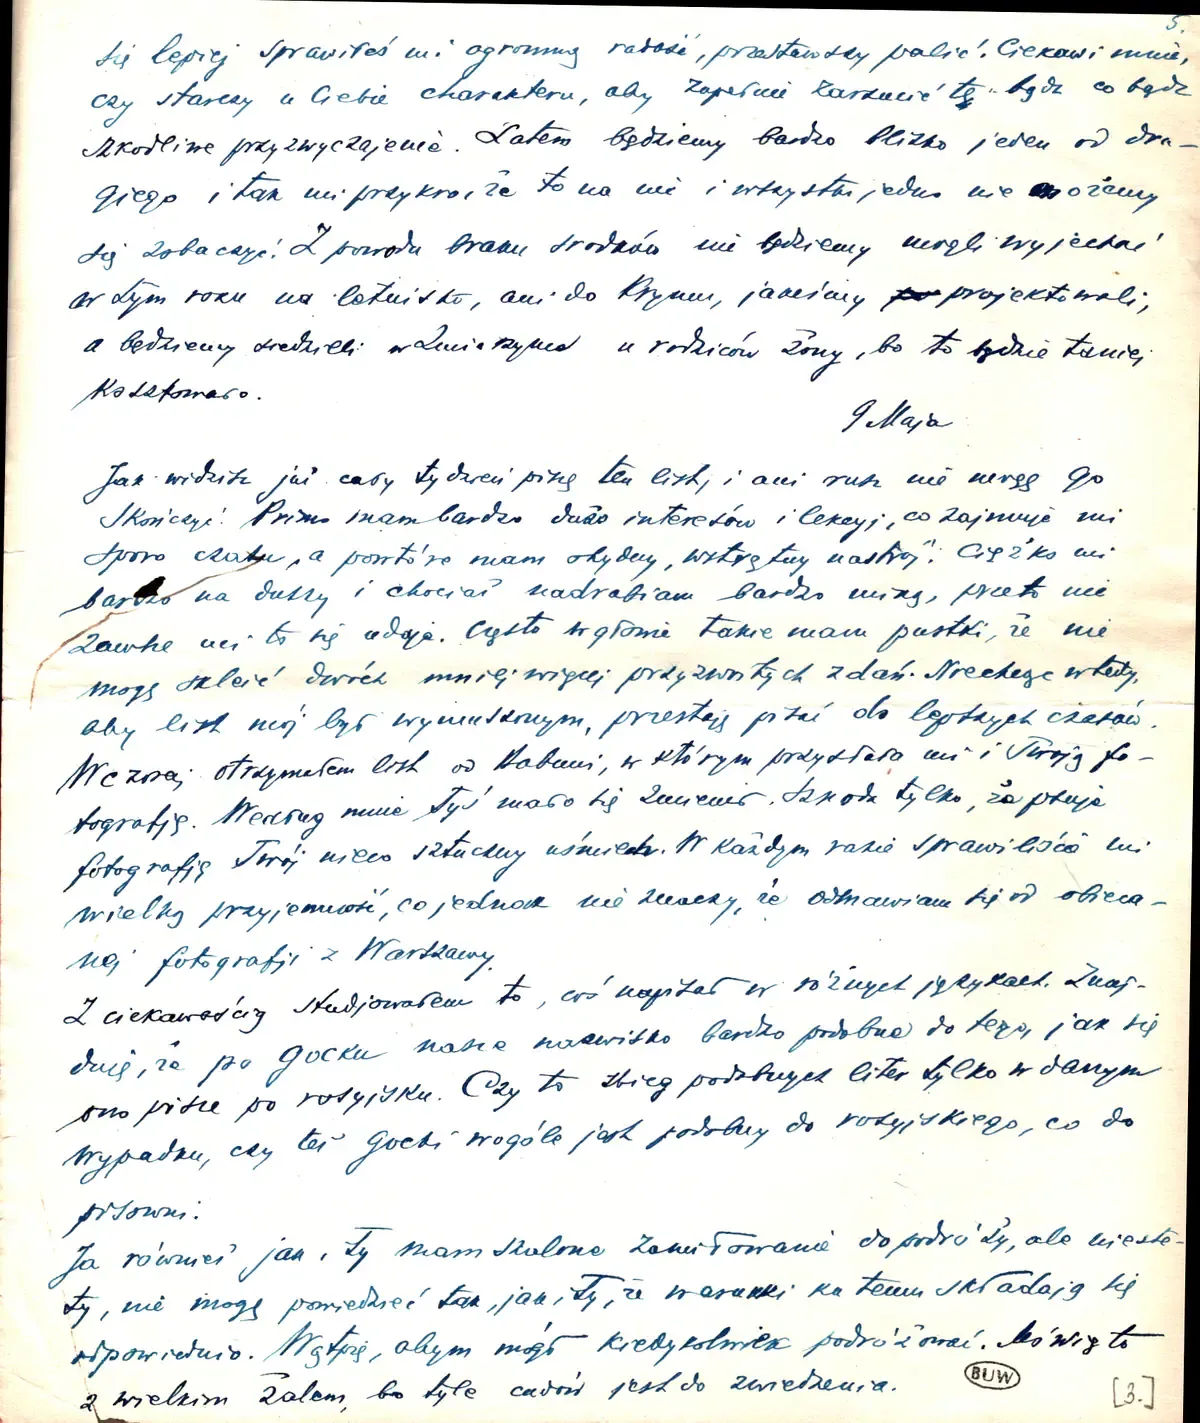 5.
się lepiej sprawiłeś mi ogromną radość, przestawszy palić. Ciekawi mnie,
czy starczy u Ciebie charakteru, aby zupełnie zarzucić tę bądź co bądź
szkodliwe przyzwyczajenie. Latem będziemy bardzo blizko jeden od dru-
giego i tak mi przykro, że to na nic i wszystko jedno nie możemy
się zobaczyć. Z powodu braku środków nie będziemy mogli wyjechać
w tym roku na letnisko, ani do Krymu, jakeśmy projektowali,
a będziemy siedzieli w u rodziców żony, bo to będzie taniej
kosztowało.
9 Maja
Jak widzisz już cały tydzień piszę ten list, i ani rusz nie mogę go
skończyć. Primo mam bardzo dużo interesów i lekcyj, co zajmuje mi
sporo czasu, a powtóre mam ohydny, wstrętny nastrój. Ciężko mi
bardzo na duszy i chociaż nadrabiam bardzo miną, przeto nie
zawsze mi to się udaje. Często w głowie takie mam pustki, że nie
mogę skleić dwóch mniej więcej przyzwoitych zdań. Nie chcąc wtedy,
aby list mój był wymuszonym, przestaję pisać do lepszych czasów.
Wczoraj otrzymałem list od Babuni, w którym przysłała mi i Twoją fo-
tografję. Według mnie Tyś mało się zmienił. Szkoda tylko, że psuje
fotografję Twój nieco sztuczny uśmiech. W każdym razie sprawiliście mi
wielką przyjemność, co jednak nie znaczy, że odmawiam się od obieca-
nej fotografji z Warszawy.
Z ciekawością studjowałem to, coś napisał w różnych językach. Znaj-
duję, że po gocku nasze nazwisko bardzo podobne do tego, jak się
ono pisze po rosyjsku. Czy to zbieg podobnych liter tylko w danym
wypadku, czy też gocki wogóle jest podobny do rosyjskiego, co do
pisowni.
Ja również jak i Ty mam szalone zamiłowanie do podróży, ale nieste-
ty, nie mogę powiedzieć tak, jak i Ty, że warunki ku temu składają się
odpowiednio. Wątpię, abym mógł kiedykolwiek podróżować. Mówię to
z wielkim żalem, bo tyle cudów jest do zwiedzenia.
BUW
[3.]